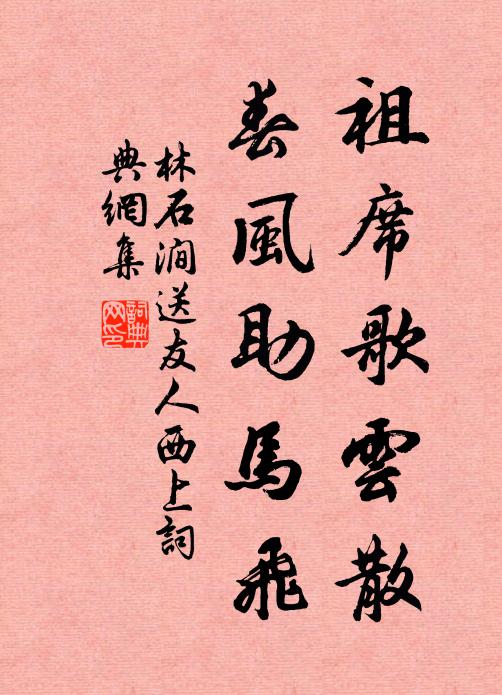 祖席歌雲散
春風助馬飛
林石澗送友人西上詞
典網集
詞典网印